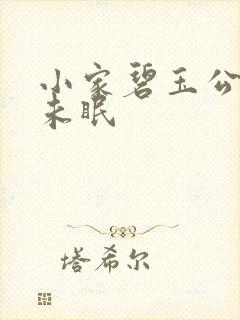 小家碧玉公
未眠
塔希尔